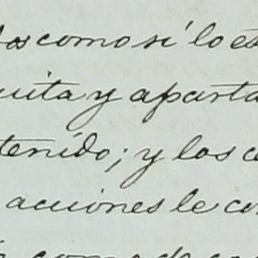 los como si lo es
uita y aparta
tenido; y los c
acciones le co